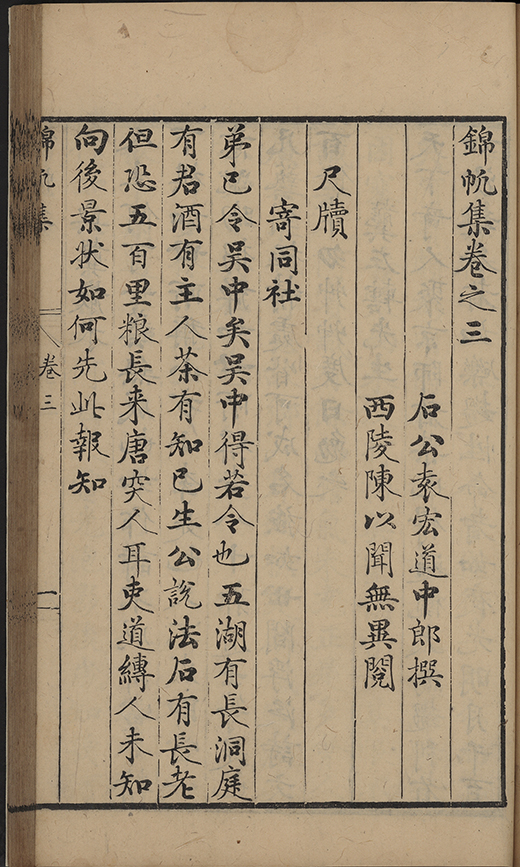 錦帆集卷之三
石公袁宏道中郎撰
西陵陳以聞無異閱
尺牘
寄同社
弟已令吳中矣吳中得若令也五湖有長洞庭
有君酒有主人茶有知己生公說法石有長老
但恐五百里粮長来唐突人耳吏道縛人未知
向後景状如何先此報知
錦帆集
卷三
一